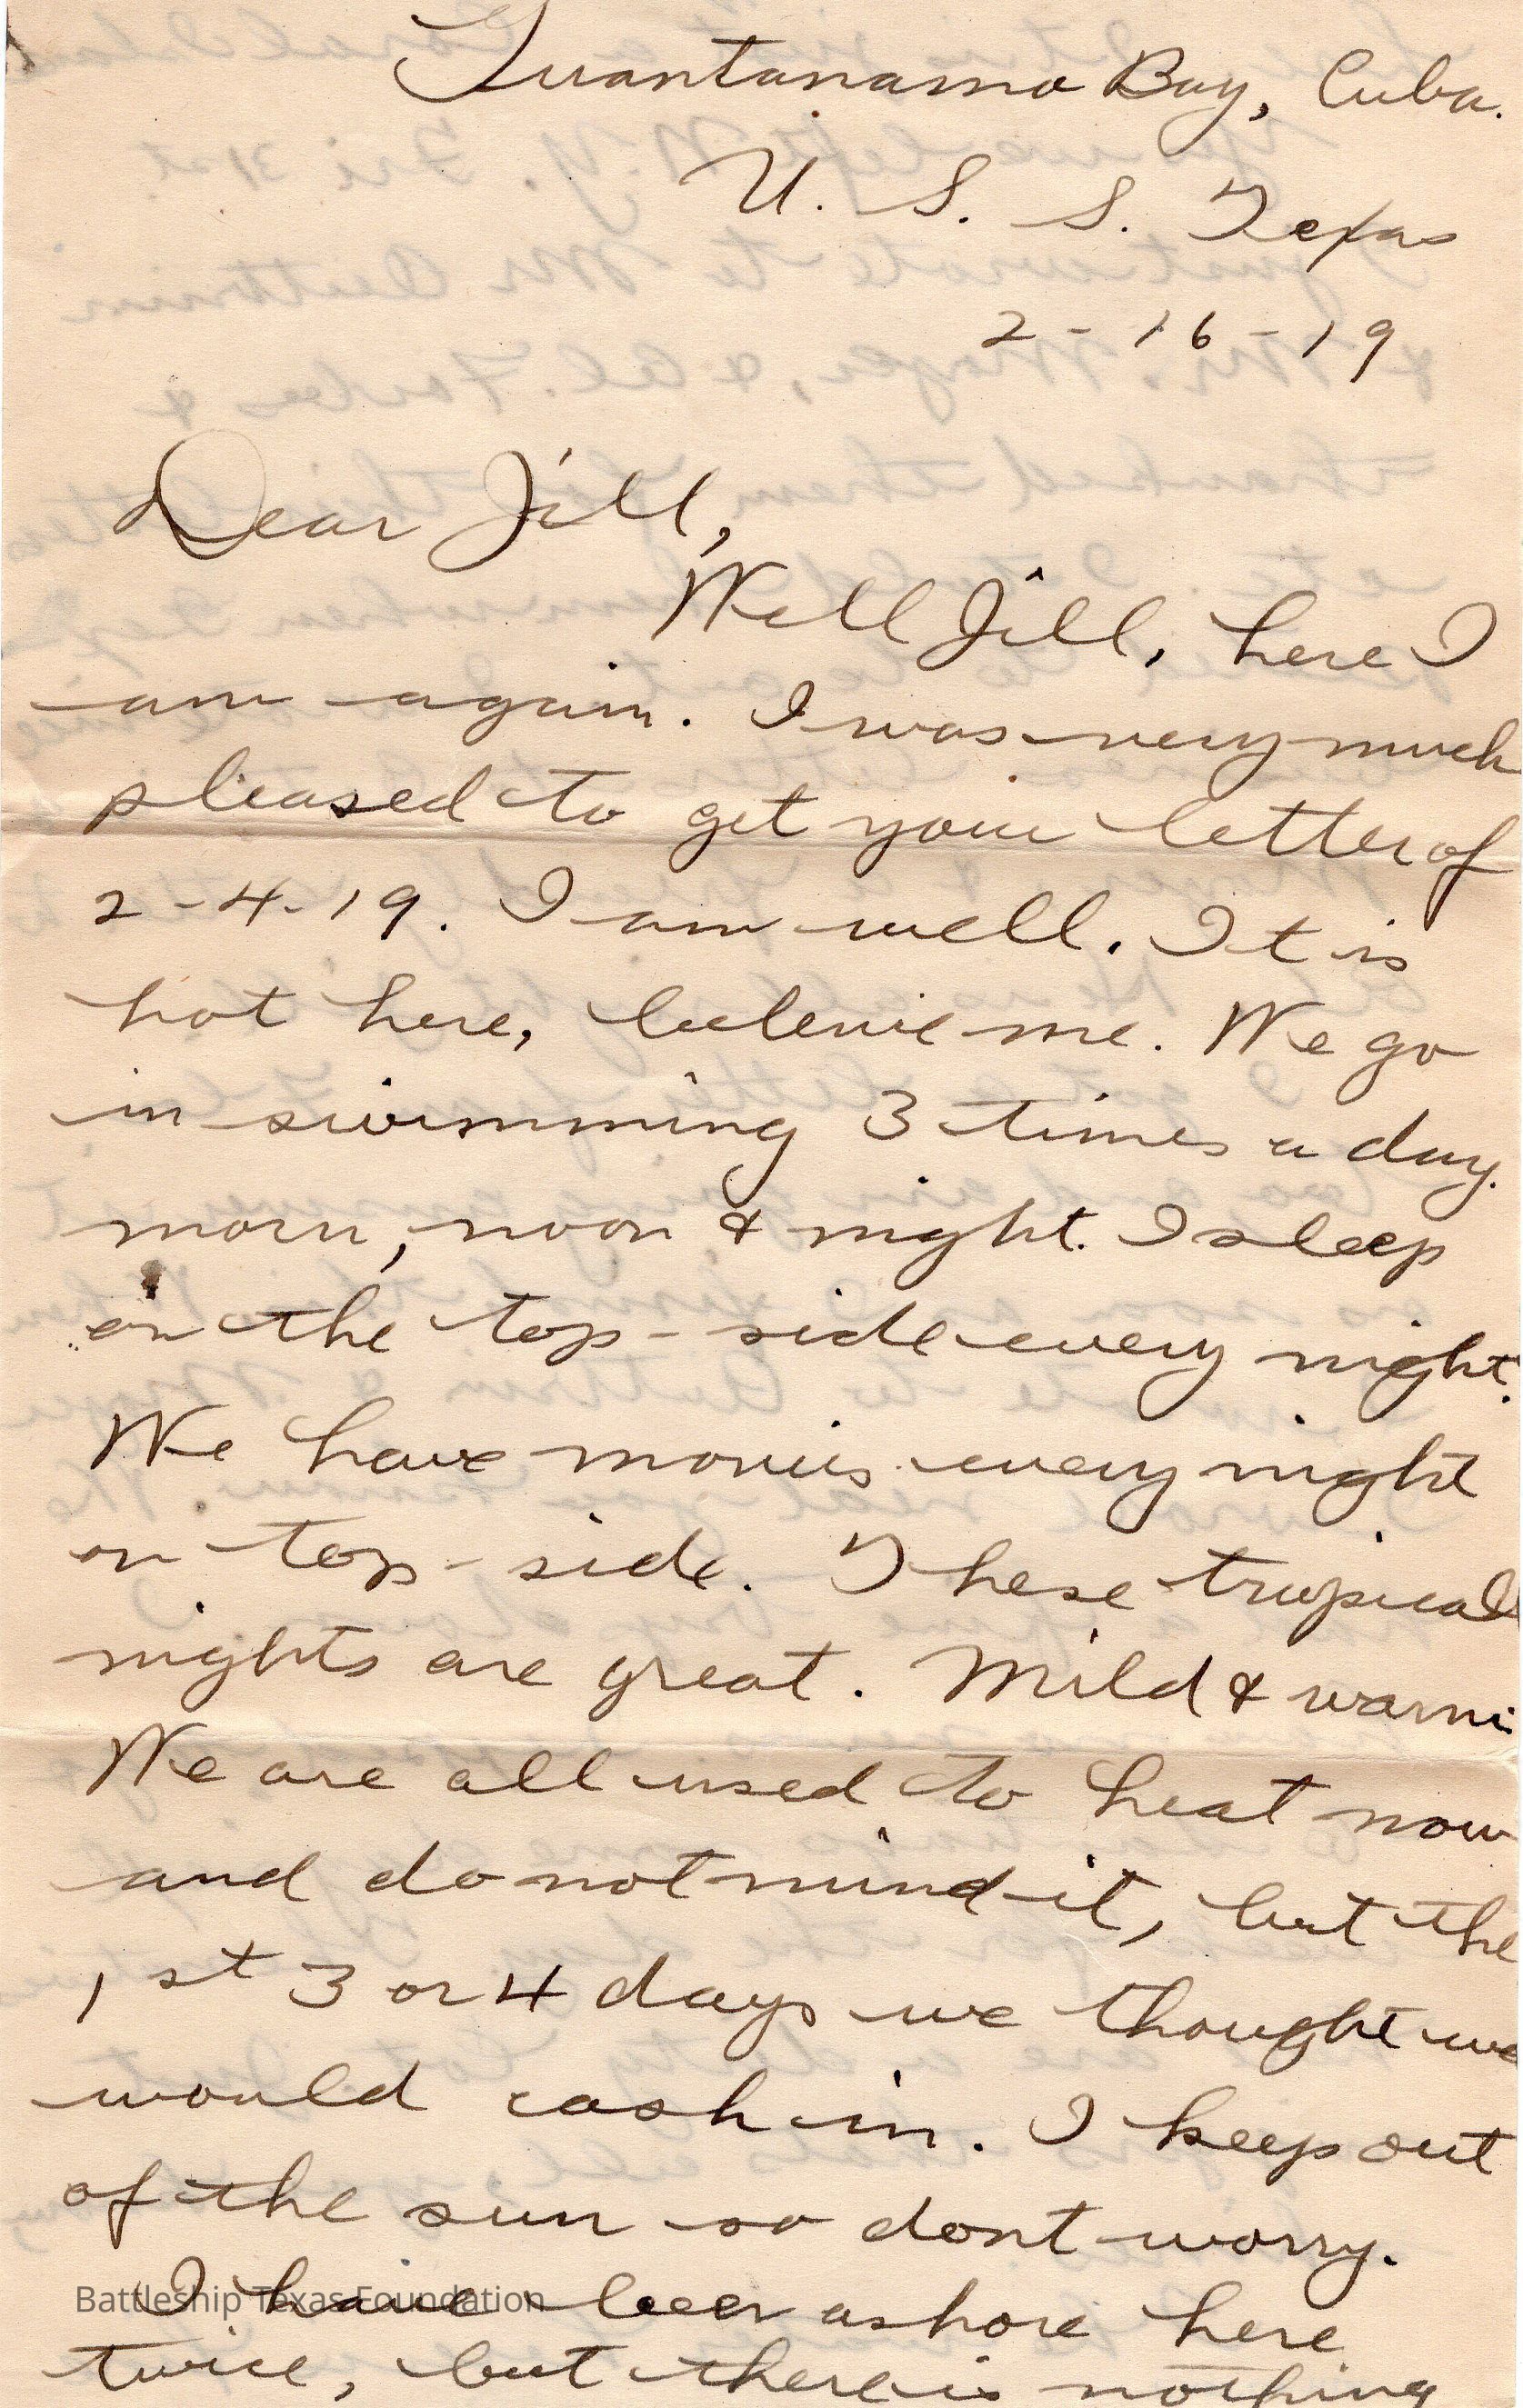 Guantanamo Bay, Cuba.
U. S. S. Texas
2-16-19
Dear Jill,
Well Jill, here I
am again. I was very much
pleased to get your letter of
2-4-19. I am well. It is
hot here, beleive me. We go
in swimming 3 times a day.
morn, noon & night. I sleep
on the top-side every night.
We have movies every night
on top-side. These tropical
nights are great. Mild & warm
We are all used to heat now
and do not mind it, but the
1st 3 or 4 days we thought we
would cash in. I keep out
of the sun so dont worry.
I have been ashore here
twice, but there is nothing
Battleship Texas Foundation